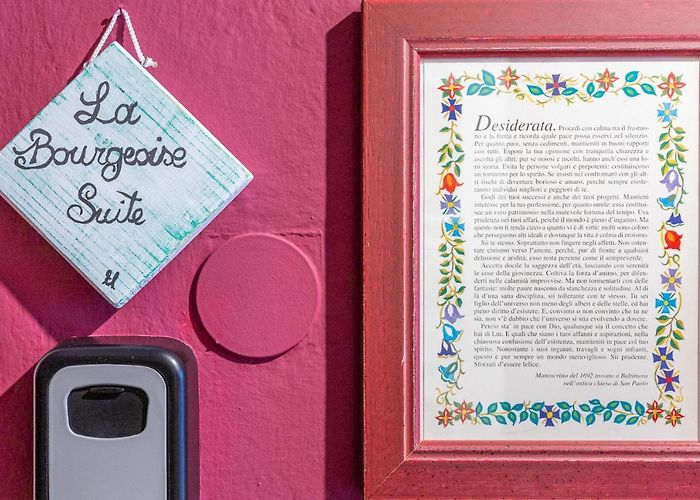 La
Bourgeoise
Suite
Desiderata. Procedi con calma tra il frastuo-
no e la fretta e ricorda quale pace possa esservi nel silenzio.
Per quanto puoi, senza cedimenti, mantieniti in buoni rapporti
con tutti. Esponi la tua opinione con tranquilla chiarezza e
ascolta gli altri: pur se noiosi e incolti, hanno anch'essi una lo-
ro storia. Evita le persone volgari e prepotenti: costituiscono
un tormento per lo spirito. Se insisti nel confrontarti con gli al-
tri rischi di diventare borioso e amaro, perché sempre esiste-
ranno individui migliori e peggiori di te.
Godi dei tuoi successi e anche dei tuoi progetti. Mantieni
interesse per la tua professione, per quanto umile: essa costitui-
sce un vero patrimonio nella mutevole fortuna del tempo. Usa
prudenza nei tuoi affari, perché il mondo è pieno d'inganno. Ma
questo non ti renda cieco a quanto vi è di virtù: molti sono coloro
che perseguono alti ideali e dovunque la vita è colma di eroismo.
Sii te stesso. Soprattutto non fingere negli affetti. Non osten-
tare cinismo verso l'amore, perchè, pur di fronte a qualsiasi
delusione e aridità, esso resta perenne come il sempreverde.
Accetta docile la saggezza dell'età, lasciando con serenità
le cose della giovinezza. Coltiva la forza d'animo, per difen-
derti nelle calamità improvvise. Ma non tormentarti con delle
fantasie: molte paure nascono da stanchezza e solitudine. Al di
là d'una sana disciplina, sii tollerante con te stesso. Tu sei
figlio dell'universo non meno degli alberi e delle stelle, ed hai
pieno diritto d'esistere. E, convinto o non convinto che tu ne
sia, non v'è dubbio che l'universo si stia evolvendo a dovere.
Perciò sta' in pace con Dio, qualunque sia il concetto che
hai di Lui. E quali che siano i tuoi affanni e aspirazioni, nella
chiassosa confusione dell'esistenza, mantieniti in pace col tuo
spirito. Nonostante i suoi inganni, travagli e sogni infranti,
questo è pur sempre un mondo meraviglioso. Sii prudente.
Sforzati d'essere felice.
Manoscritto del 1692 trovato a Baltimora
nell'antica chiesa di San Paolo